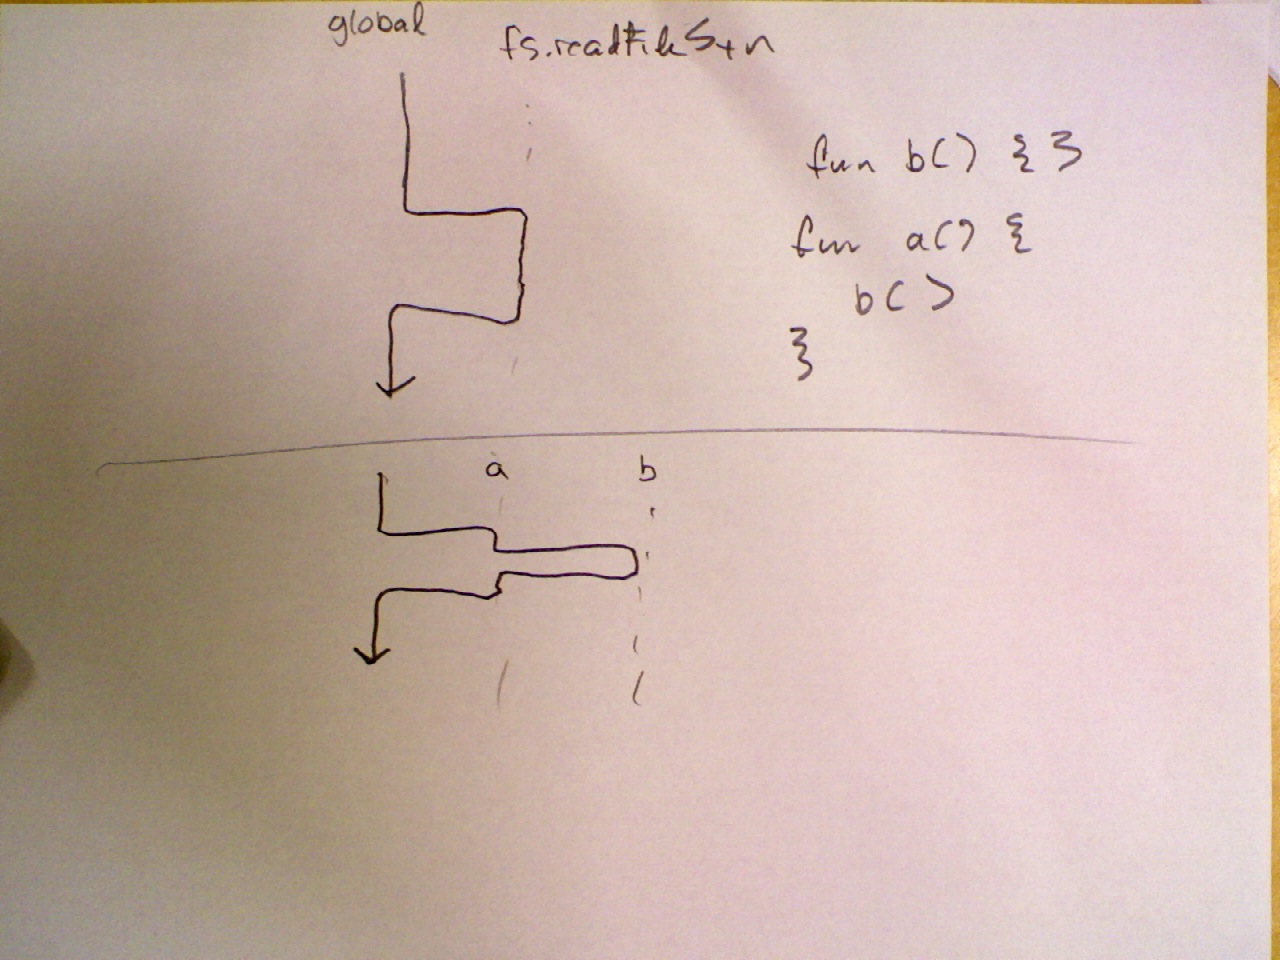 global
fs.readFileSyn
fun b() { }
fun a() {
b()
}
a
b